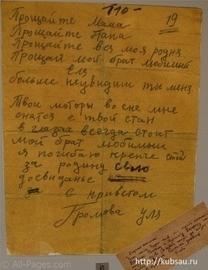 110-
19
Прощайте Мама
Прощайте Папа
Прощайте вся моя родня
Прощай мой брат любимый
Еля
больше неувидиш ты меня.
Твои моторы во сне мне
снятся твой стан
в глазах всегда стоит
мой брат любимый
я погибаю крепче стой
за родину свою
досвиданье
с приветом
Громова Уля
http://kubsau.ru/